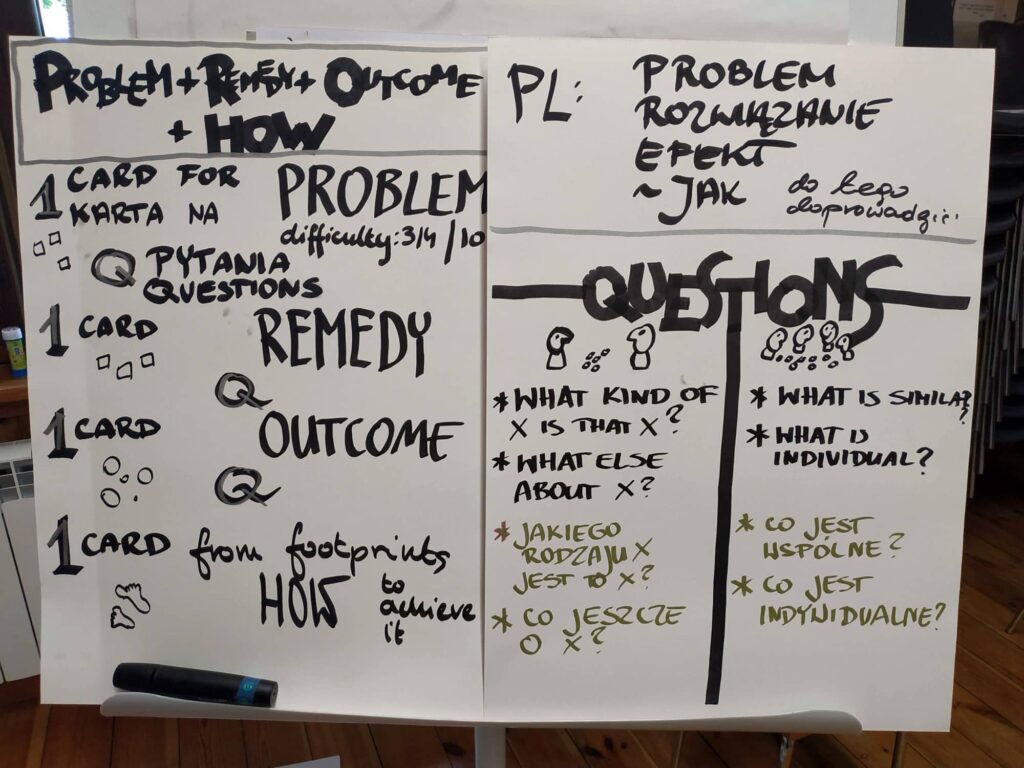 PROBLEM + REMEDY + OUTCOME
+ HOW
1 CARD FOR PROBLEM
KARTA NA
difficulty: 3/4/10
Q PYTANIA
QUESTIONS
1 CARD REMEDY
Q
1 CARD OUTCOME
Q
1 CARD from footprints
HOW to
achieve
it
PL: PROBLEM
ROZWIĄZANIE
EFEKT
~JAK do tego
doprowadzić
QUESTIONS
* WHAT KIND OF
X IS THAT X?
* WHAT ELSE
ABOUT X?
* JAKIEGO
RODZAJU X
JEST TO X?
* CO JESZCZE
O X?
* WHAT IS SIMILAR?
* WHAT IS
INDIVIDUAL?
* CO JEST
WSPÓLNE?
* CO JEST
INDYWIDUALNE?